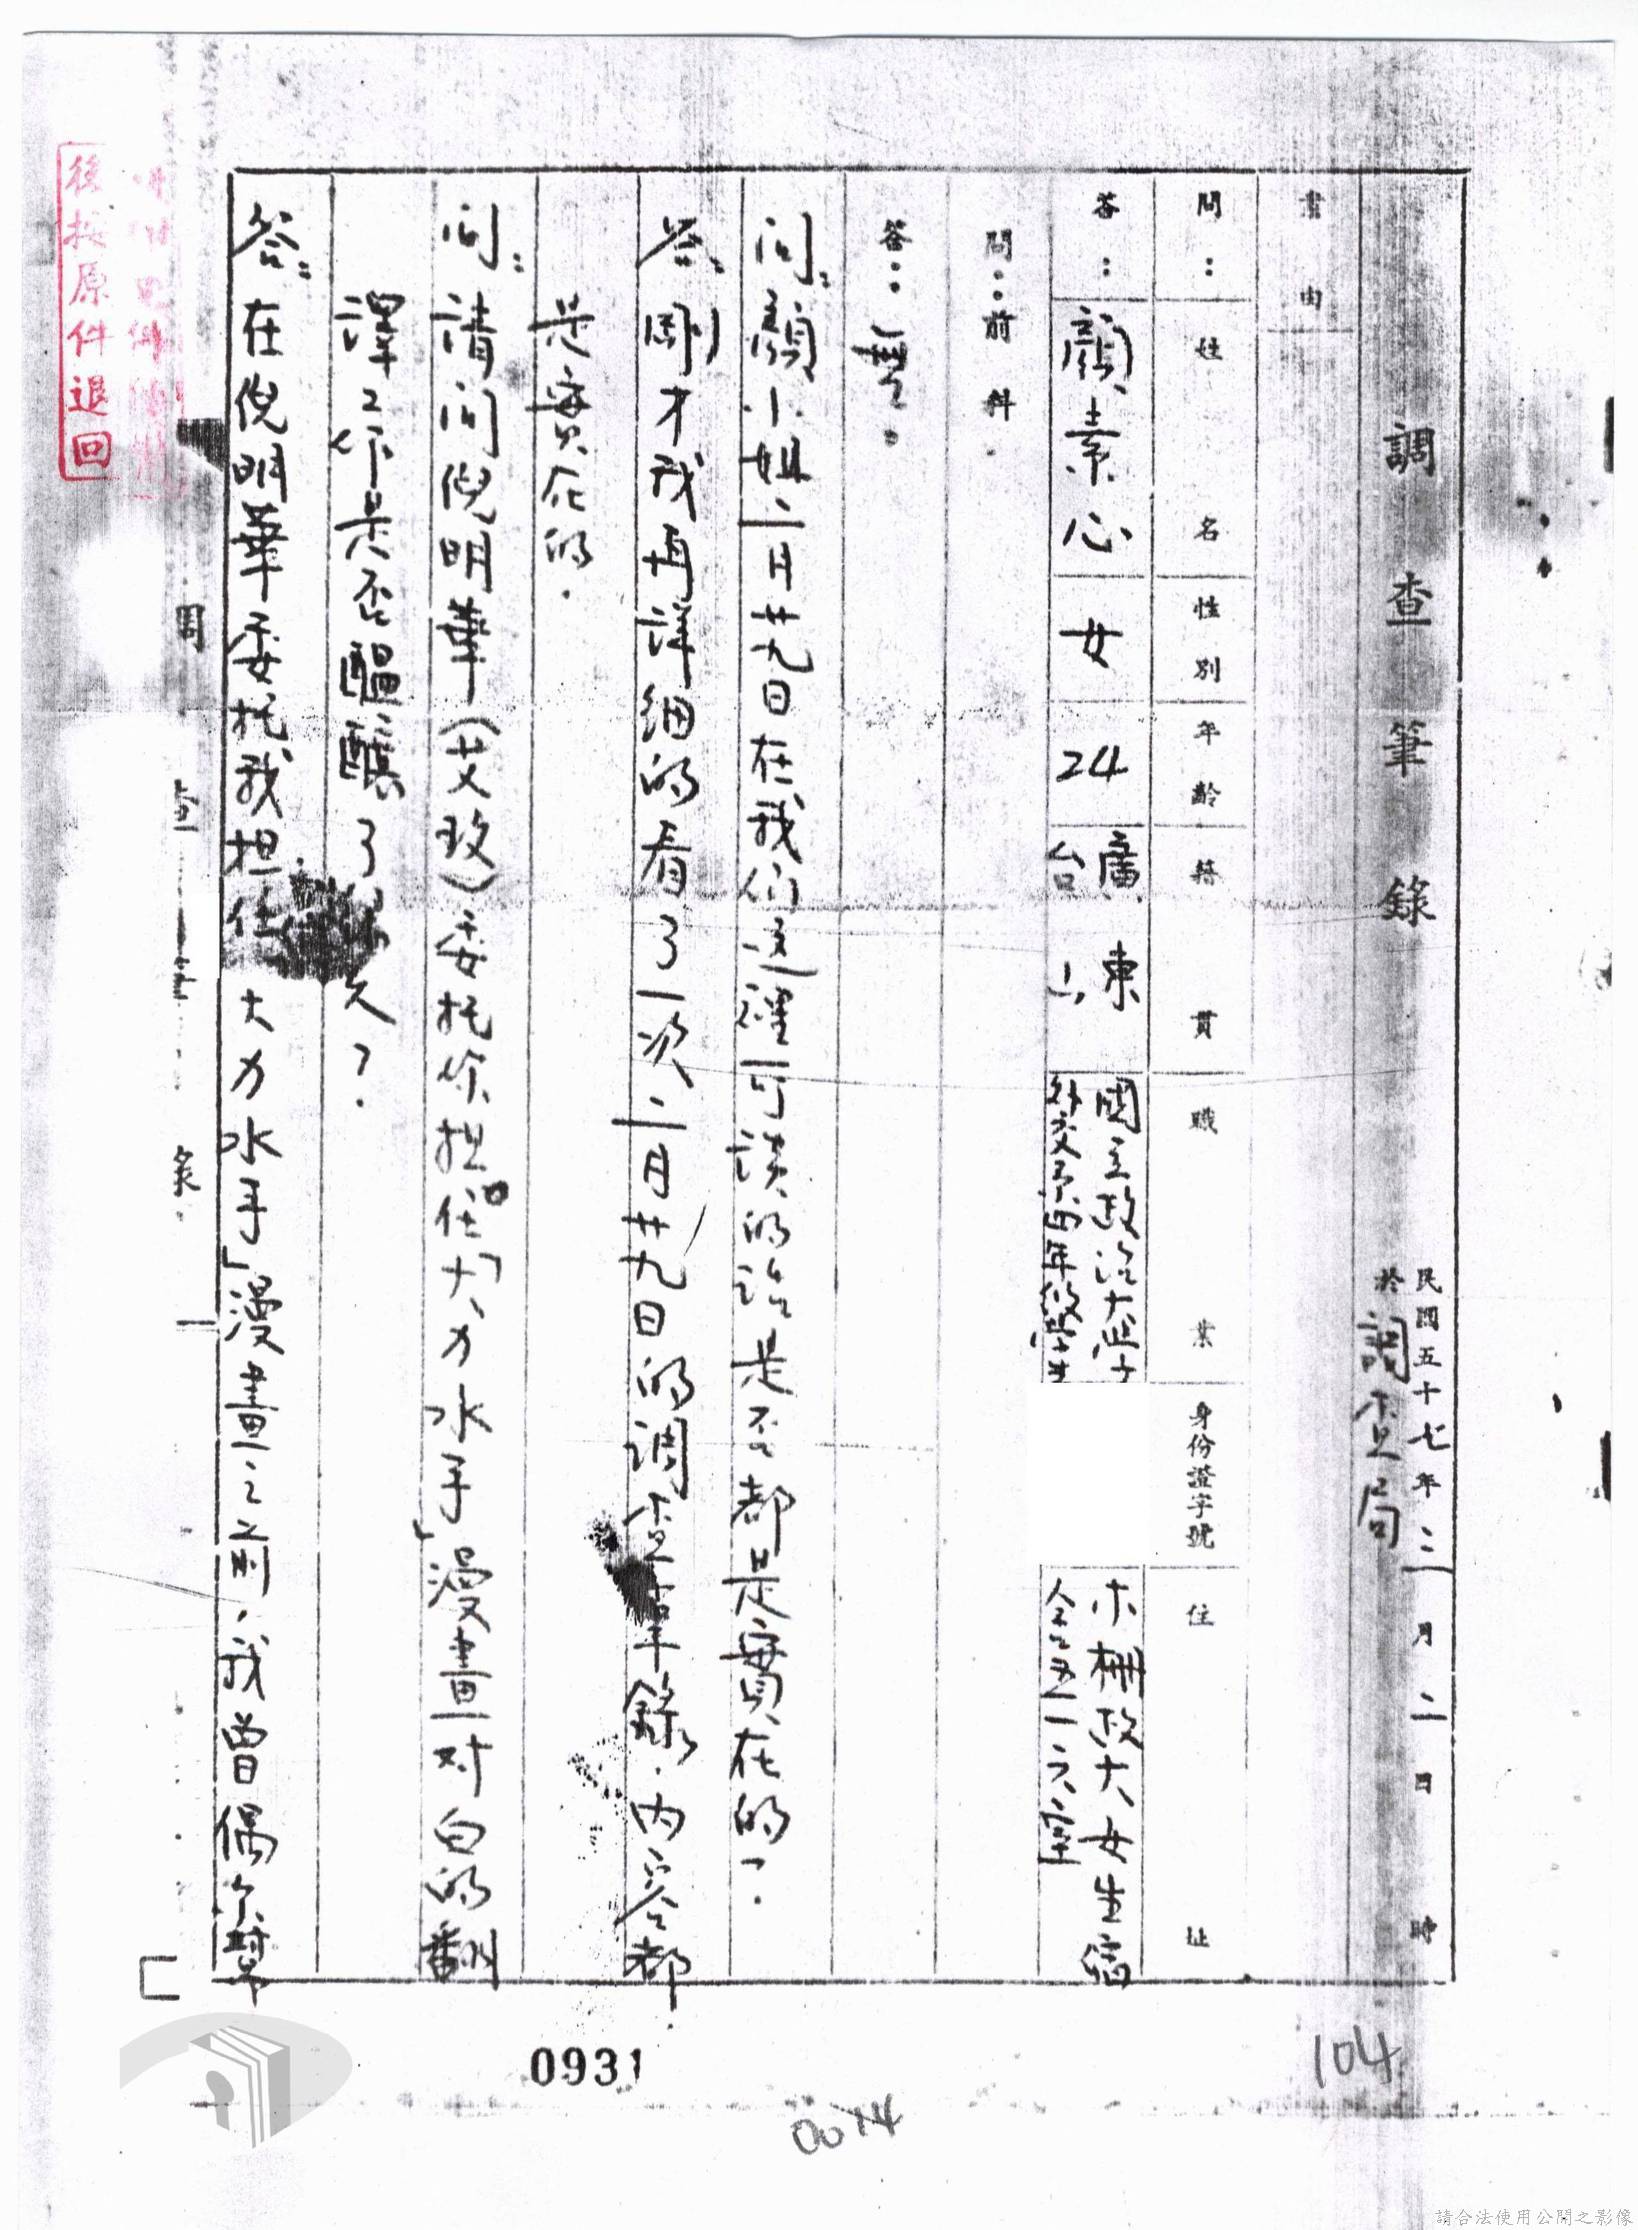 調查筆錄 民國五十七年三月二日 時
於調查局
案由
問： 姓名 性別 年齡 籍貫 職業 身份證字號 住址
答： 顏素心 女 24 廣東台山 國立政治大學外交系四年級學生 木柵政大女生宿舍五一六室
問：前科.
答：無.
問：顏小姐、二月廿九日在我们這裡所談的話是否都是實在的？.
答：剛才我再詳细的看了一次、二月廿九日的調查筆錄.內容都
是實在的.
问：請问倪明華(艾玫)委托你担任「大力水手」漫畫对白的翻
譯工作是否醞釀了 久？.
答：在倪明華委托我担任 大力水手」漫畫之前.我曾偶尔幫
調查筆錄
後按原件退回
0931
104
0014
請合法使用公開之影像